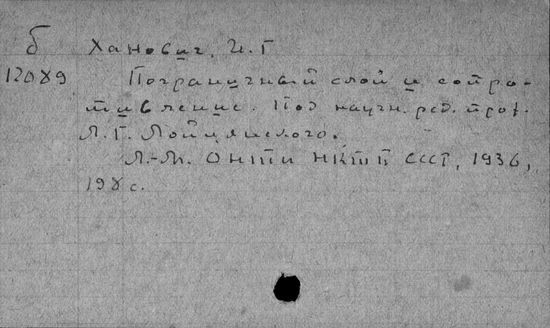 б Ханович, И. Г
12089 Пограничный слой и сопро-
тивление. Под научн. ред. проф.
Л. Г. Лойцянского.
Л.-М. ОНТИ НКТП СССР, 1936,
198 с.